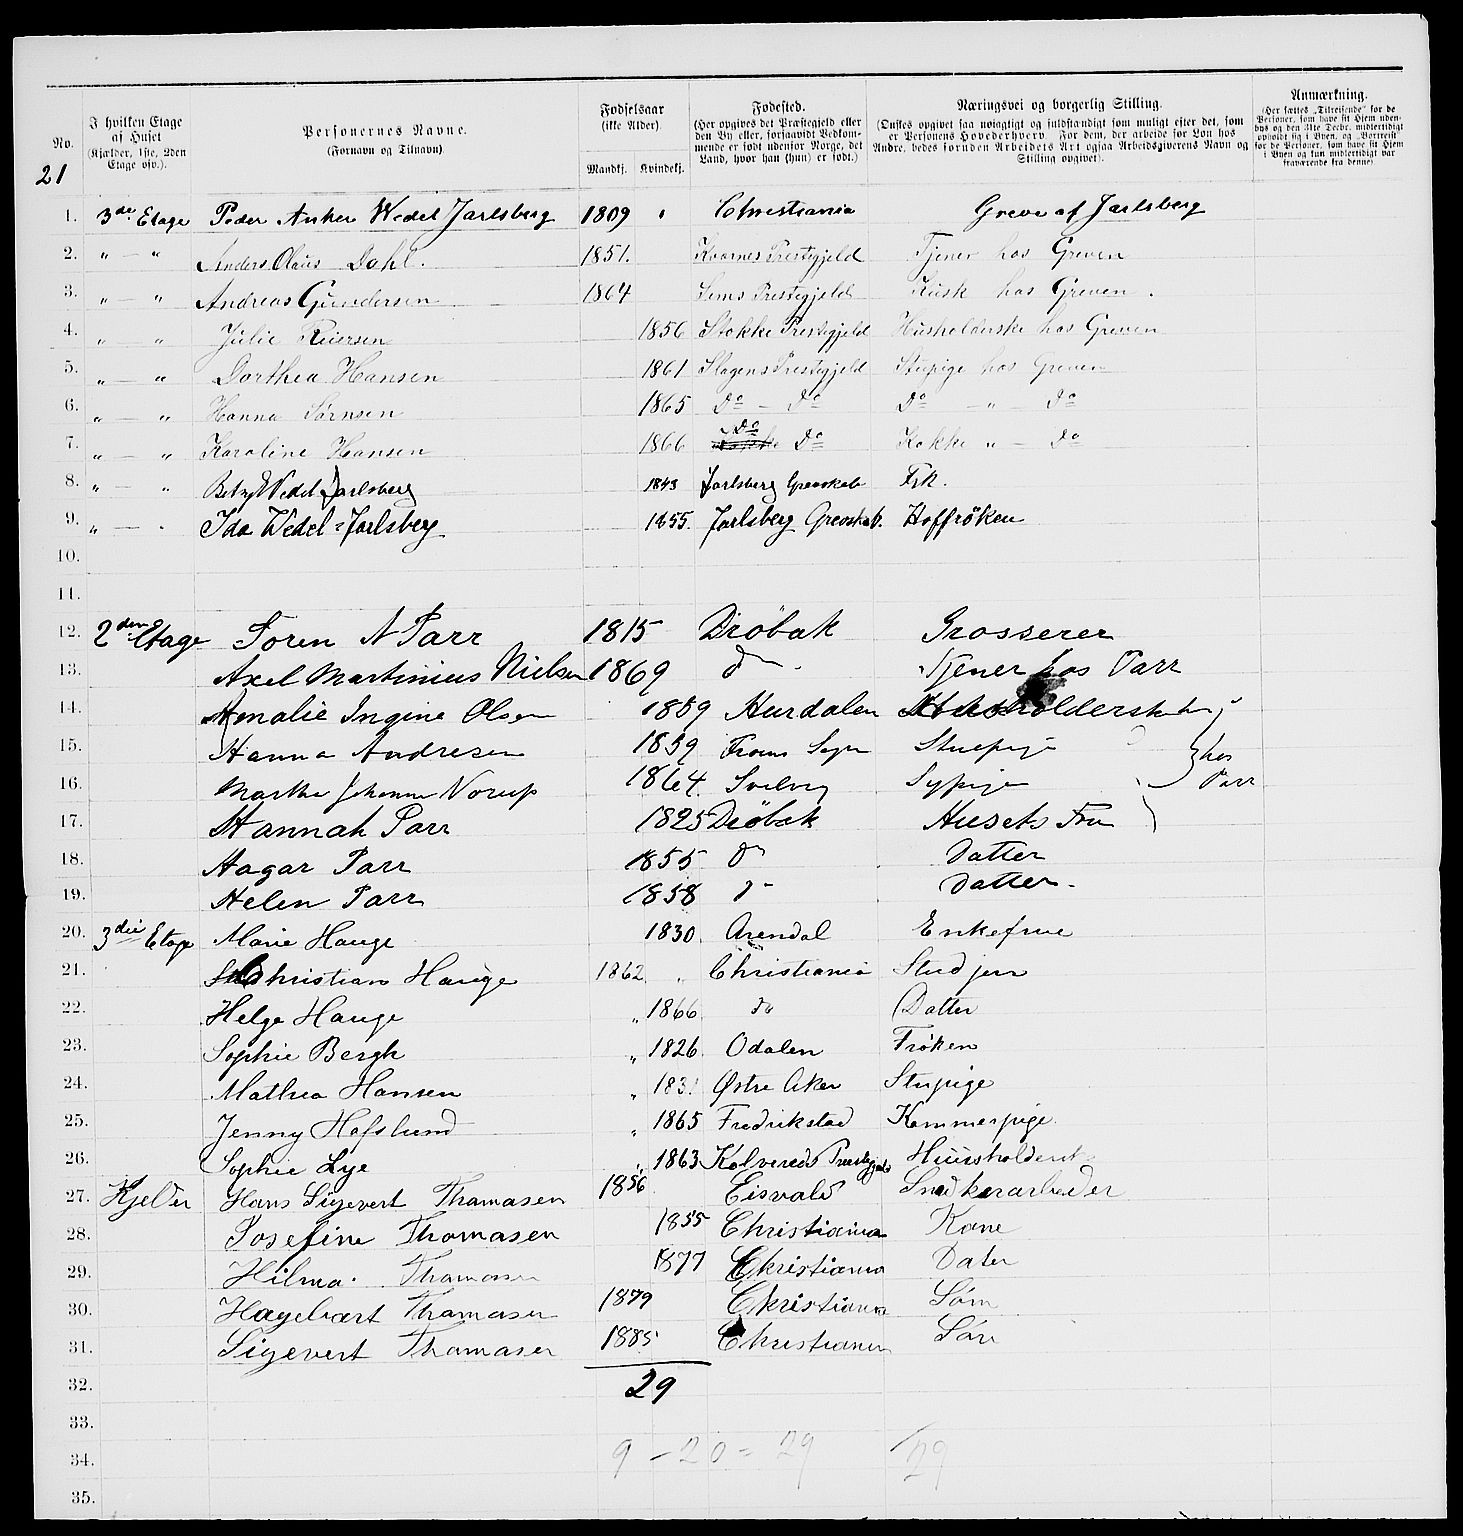 No.
I hvilken Etage af Huset (Kjælder, 1ste, 2den Etage osv.).
Personernes Navne. (Fornavn og Tilnavn)
Fødselsaar (ikke Alder)
Mandkj. Kvindekj.
Fødested. (Her opgives det Præstegjeld eller den By eller, forsaavidt Vedkommende er født udenfor Norge, det Land, hvor han (hun) er født.)
Næringsvei og borgerlig Stilling. (Ønskes opgivet saa nøiagtigt og fuldstændigt som muligt efter det, som er Personens Hovederhverv. For dem, der arbeide for Løn hos Andre, bedes foruden Arbeidets Art ogsaa Arbeidsgiverens Navn og Stilling opgivet).
Anmærkning. (Her sættes "Tilreisende" for de Personer, som have sit Hjem udenbys og den 31te Decbr. midlertidigt opholdt sig i Byen, og "Bortreist" for de Personer, som have sit Hjem i Byen og kun midlertidigt var fraværende fra denne)
21
1. 3de Etage Peder Anker Wedel Jarlsberg 1809 " Christiania Greve af Jarlsberg
2. " — " Anders Olaus Dahl. 1851. Kvarnes Prestegjeld Tjener hos Greven
3. " — " Andreas Gundersen 1864 Sems Prestegjeld Kusk hos Greven .
4. " " Julie Reiersen 1856 Stokke Prestegjeld Husholderske hos Greven
5. " — " Dorthea Hansen 1861 Slagens Prestegjeld Stupige hos Greven
6. " — " Hanna Sørnsen 1865 Do — Do Do — " Do
7. " — " Karoline Hansen 1866 Do Do Kokke " — Do
8. " — " Betzy Wedel Jarlsberg 1843 Jarlsberg Grevskab Frk.
9. " — " Ida Wedel=Jarlsberg 1855. Jarlsberg Grevskab. Hoffrøken
10.
11.
12. 2den Etage Søren A Parr 1815 Drøbak Grosserer
13. Axel Martinius Nielsen 1869 do Tjener hos Parr
14. Amalie Ingine Olsen 1859 Hurdalen Husholderske
15. Hanna Andresen 1859 Stuepige } hos
16. Marthe Johanne Vorup 1864. Svelvig Sypige Parr
17. Hannah Parr 1825 Drøbak Husets Fru
18. Hagar Parr 1855 do Datter
19. Helen Parr 1858 do Datter.
20. 3die Etage Marie Hauge 1830. Arendal Enkefrue
21. Christian Hauge 1862. " Christiania Stud jur
22. Helga Hauge " 1866. do Datter
23. Sophie Bergh " 1826. Odalen Frøken
24. Mathea Hansen " 183. Østre Aker Stupige
25. Jenny Hafslund " 1865 Fredrikstad Kammerpige.
26. Sophie Lye " 1863 Kolvereds Prestegjeld Huusholderske
27. Kjelder Hans Sigevert Thomasen 1856 Eisvold Snedkerarbeider
28. Josefine Thomasen 1855 Christiania Kone
29. Hilma. Thomasen 1877 Christiania Dater
30. Hagebart Thomasen 1879 Christiania Søn
31. Sigevert Thomasen 1885 Christiania Søn
32. 29
33.
34. 9 — 20 = 29 29
35.